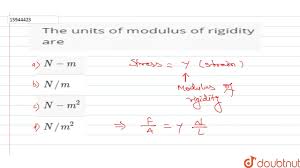 13944423
The units of modulus of rigidity
are
a) N - m
b) N/m
c) N - m²
d) N/m²
Stress = Y (strain)
↑
Modulus of
rigidity
⇒ F/A = Y
doubtnut